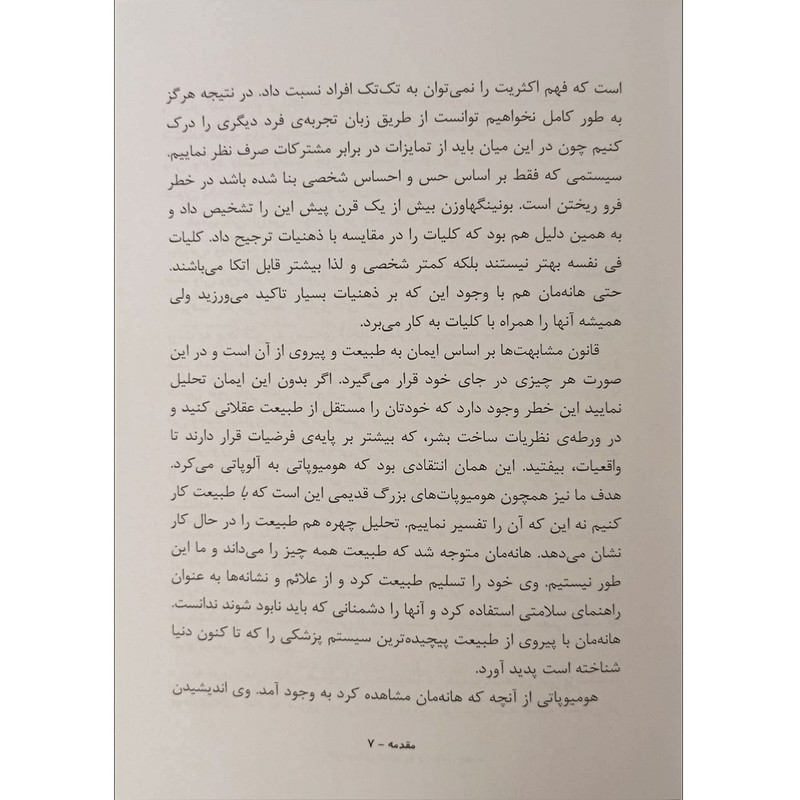 است که فهم اکثریت را نمی‌توان به تک‌تک افراد نسبت داد. در نتیجه هرگز
به طور کامل نخواهیم توانست از طریق زبان تجربه‌ی فرد دیگری را درک
کنیم چون در این میان باید از تمایزات در برابر مشترکات صرف نظر نماییم.
سیستمی که فقط بر اساس حس و احساس شخصی بنا شده باشد در خطر
فرو ریختن است. بونینگهاوزن بیش از یک قرن پیش این را تشخیص داد و
به همین دلیل هم بود که کلیات را در مقایسه با ذهنیات ترجیح داد. کلیات
فی نفسه بهتر نیستند بلکه کمتر شخصی و لذا بیشتر قابل اتکا می‌باشند.
حتی هانه‌مان هم با وجود این که بر ذهنیات بسیار تاکید می‌ورزید ولی
همیشه آنها را همراه با کلیات به کار می‌برد.
قانون مشابهت‌ها بر اساس ایمان به طبیعت و پیروی از آن است و در این
صورت هر چیزی در جای خود قرار می‌گیرد. اگر بدون این ایمان تحلیل
نمایید این خطر وجود دارد که خودتان را مستقل از طبیعت عقلانی کنید و
در ورطه‌ی نظریات ساخت بشر، که بیشتر بر پایه‌ی فرضیات قرار دارند تا
واقعیات، بیفتید. این همان انتقادی بود که هومیوپاتی به آلوپاتی می‌کرد.
هدف ما نیز همچون هومیوپات‌های بزرگ قدیمی این است که با طبیعت کار
کنیم نه این که آن را تفسیر نماییم. تحلیل چهره هم طبیعت را در حال کار
نشان می‌دهد. هانه‌مان متوجه شد که طبیعت همه چیز را می‌داند و ما این
طور نیستیم. وی خود را تسلیم طبیعت کرد و از علائم و نشانه‌ها به عنوان
راهنمای سلامتی استفاده کرد و آنها را دشمنانی که باید نابود شوند ندانست.
هانه‌مان با پیروی از طبیعت پیچیده‌ترین سیستم پزشکی را که تا کنون دنیا
شناخته است پدید آورد.
هومیوپاتی از آنچه که هانه‌مان مشاهده کرد به وجود آمد. وی اندیشیدن
مقدمه - ۷